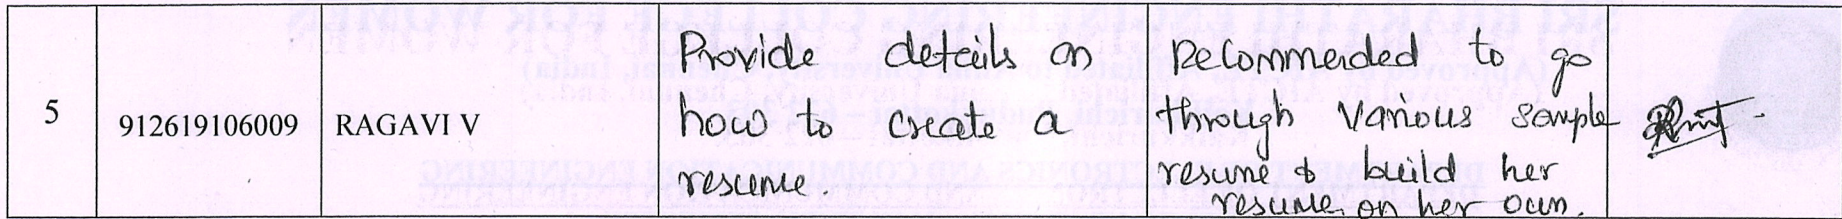 5
912619106009
RAGAVI V
Provide details on
how to create a
resume
Recommended to go
through various sample
resume & build her
resume on her own.